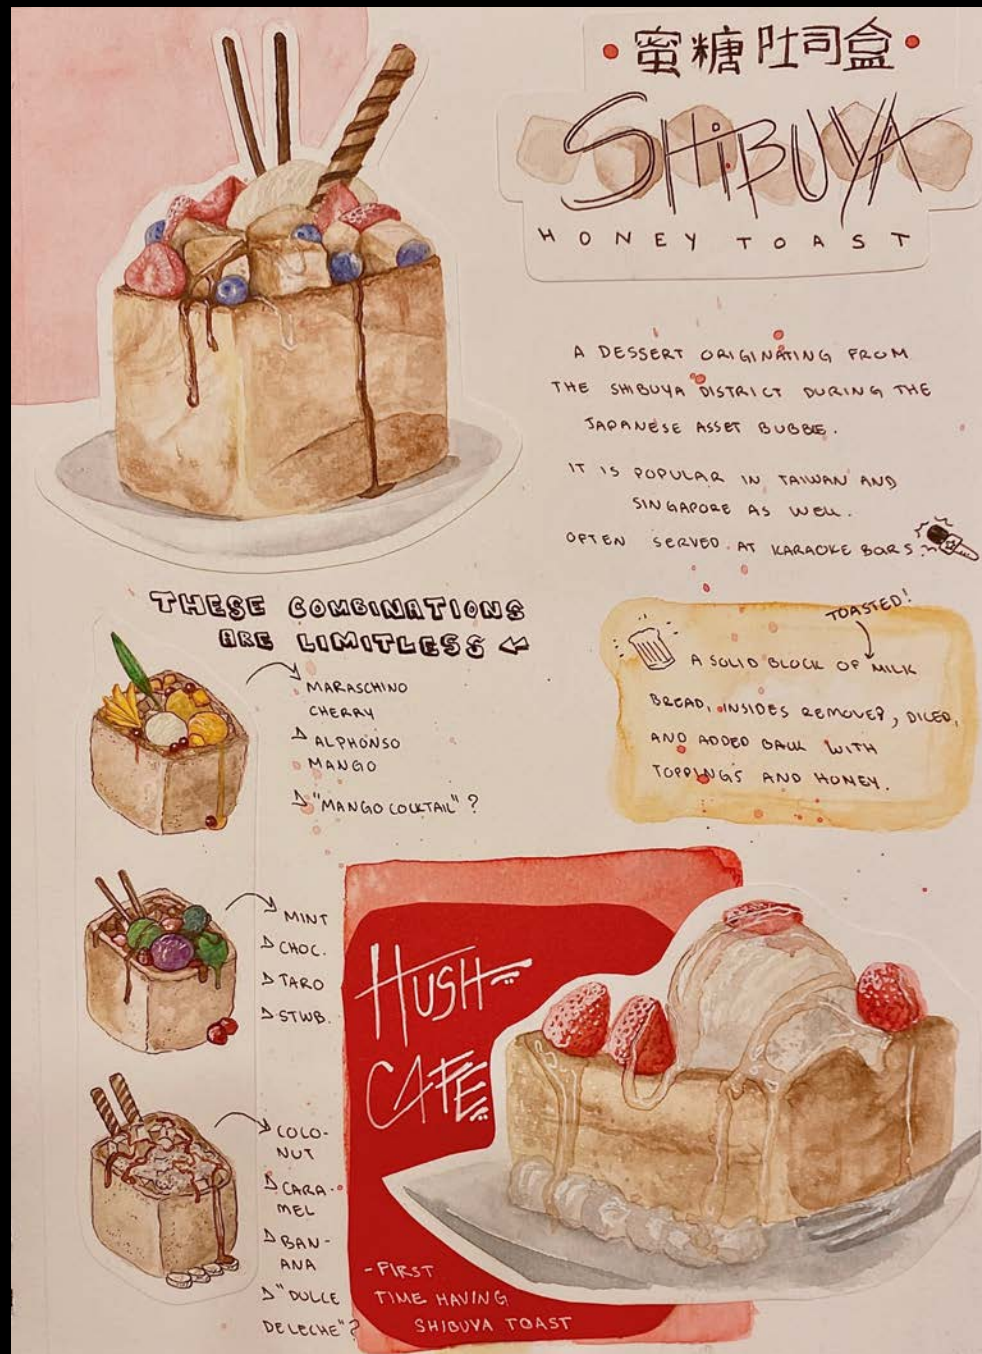 蜜糖吐司盒
SHIBUYA
HONEY TOAST
A DESSERT ORIGINATING FROM
THE SHIBUYA DISTRICT DURING THE
JAPANESE ASSET BUBBLE.
IT IS POPULAR IN TAIWAN AND
SINGAPORE AS WELL.
OFTEN SERVED AT KARAOKE BARS
THESE COMBINATIONS
ARE LIMITLESS
MARASCHINO
CHERRY
ALPHONSO
MANGO
"MANGO COCKTAIL"?
TOASTED!
A SOLID BLOCK OF MILK
BREAD, INSIDES REMOVED, DICED,
AND ADDED BACK WITH
TOPPINGS AND HONEY.
MINT
CHOC.
TARO
STWB.
COCO-
NUT
CARA-
MEL
BAN-
ANA
"DULCE
DE LECHE"?
HUSH
CAFE
-FIRST
TIME HAVING
SHIBUYA TOAST